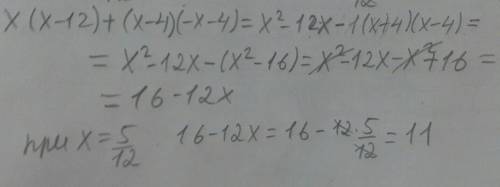 x(x-12)+(x-4)(-x-4)=x²-12x-1(x+4)(x-4)=
=x²-12x-(x²-16)=x²-12x-x²+16=
=16-12x
при x=5/12 16-12x=16-12·5/12=11